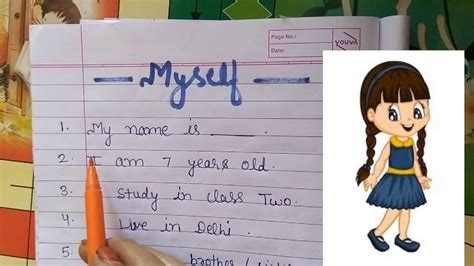 Page No.:
Date:
youva
Myself
1. My name is ____.
2. I am 7 years old.
3. Study in class Two.
4. Live in Delhi.
5. brother /